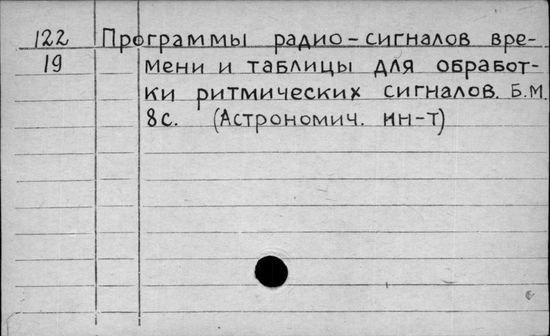 122 Программы радио-сигналов вре-
19 мени и таблицы для обработ-
ки ритмических сигналов. Б.М.
8с. (Астрономич. ин-т)